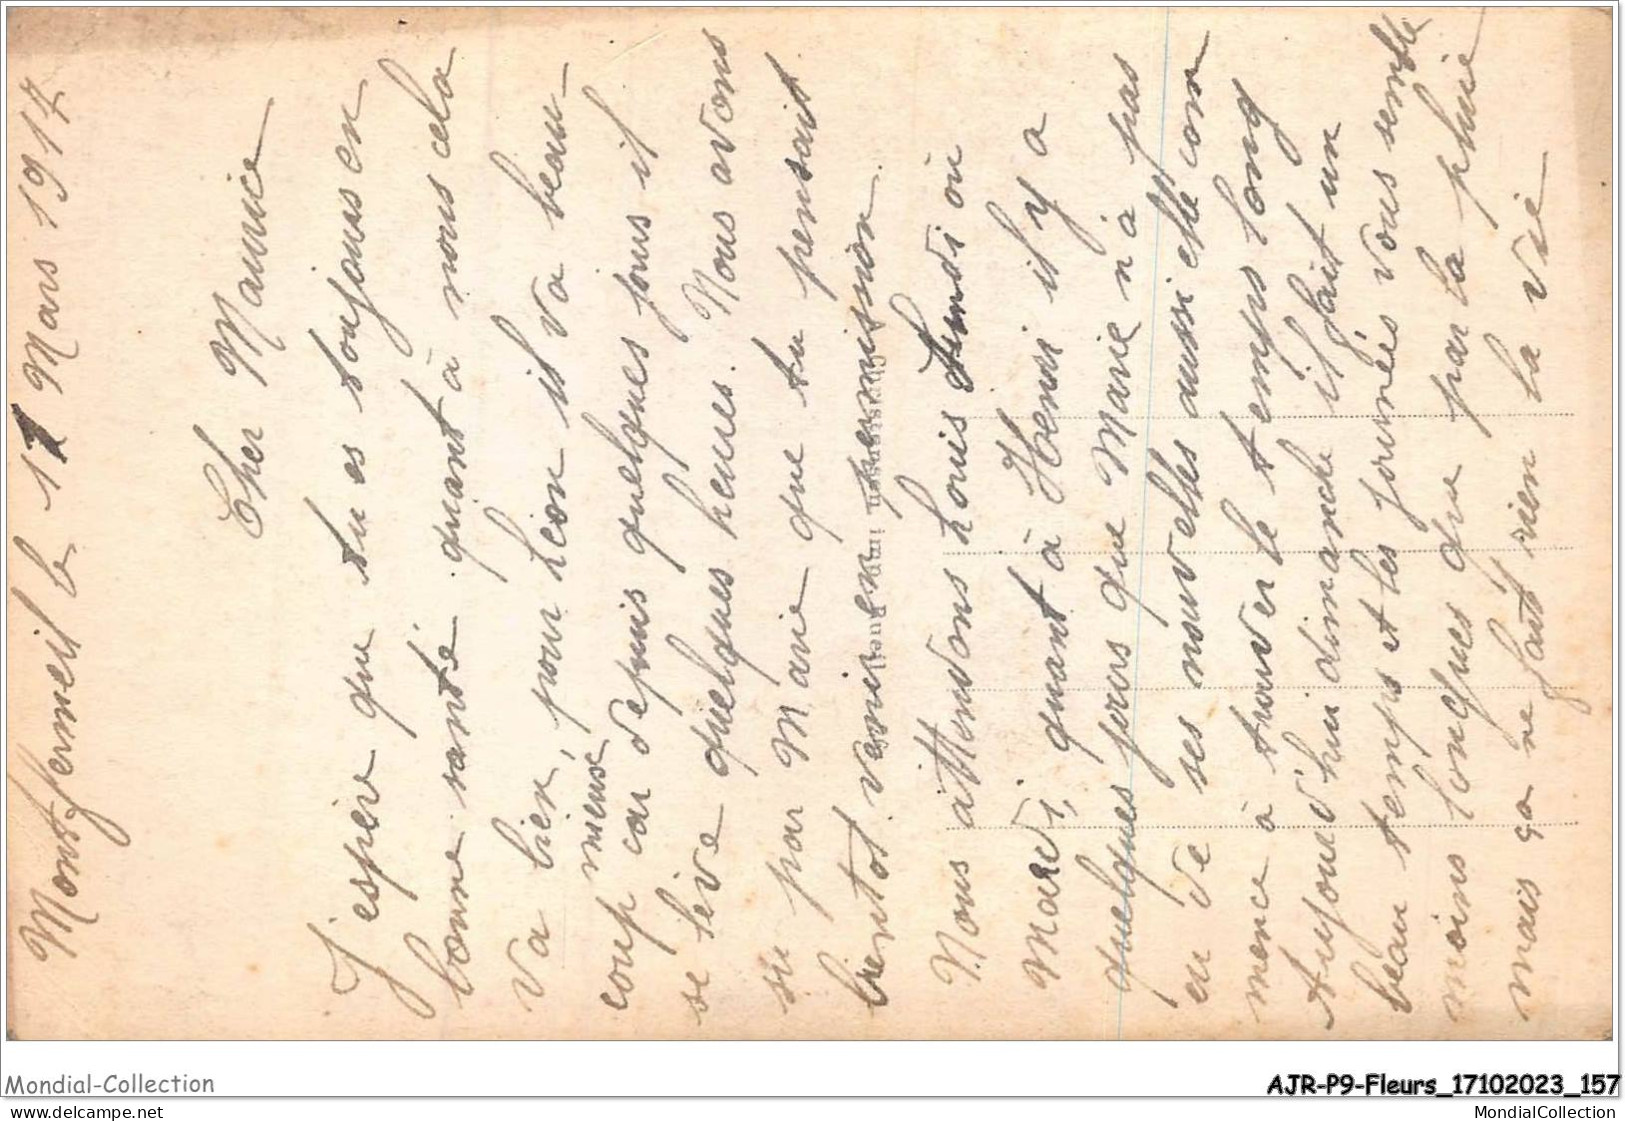 Montfermeil le 11 Mars 1917
Cher Maurice
J'espère que tu es toujours en
bonne santé quant à nous cela
va bien, pour Léon il va beau-
mieux
coup car depuis quelques jours il
se lève quelques heures. Nous avons
su par Marie que tu pensait
bientot venir en permission.
Nous attendons Louis lundi ou
Mardi, quant à Henri il y a
quelques jours que Marie n'a pas
eu de ses nouvelles aussi elle com
mence à trouver le temps long
Aujourd'hui dimanche il fait un
beau temps et les journées vous semble
moins longues que par la pluie
mais ça ne fait rien la vie
Mondial-Collection
delcampe.net
AJR-P9-Fleurs_17102023_157
MondialCollection